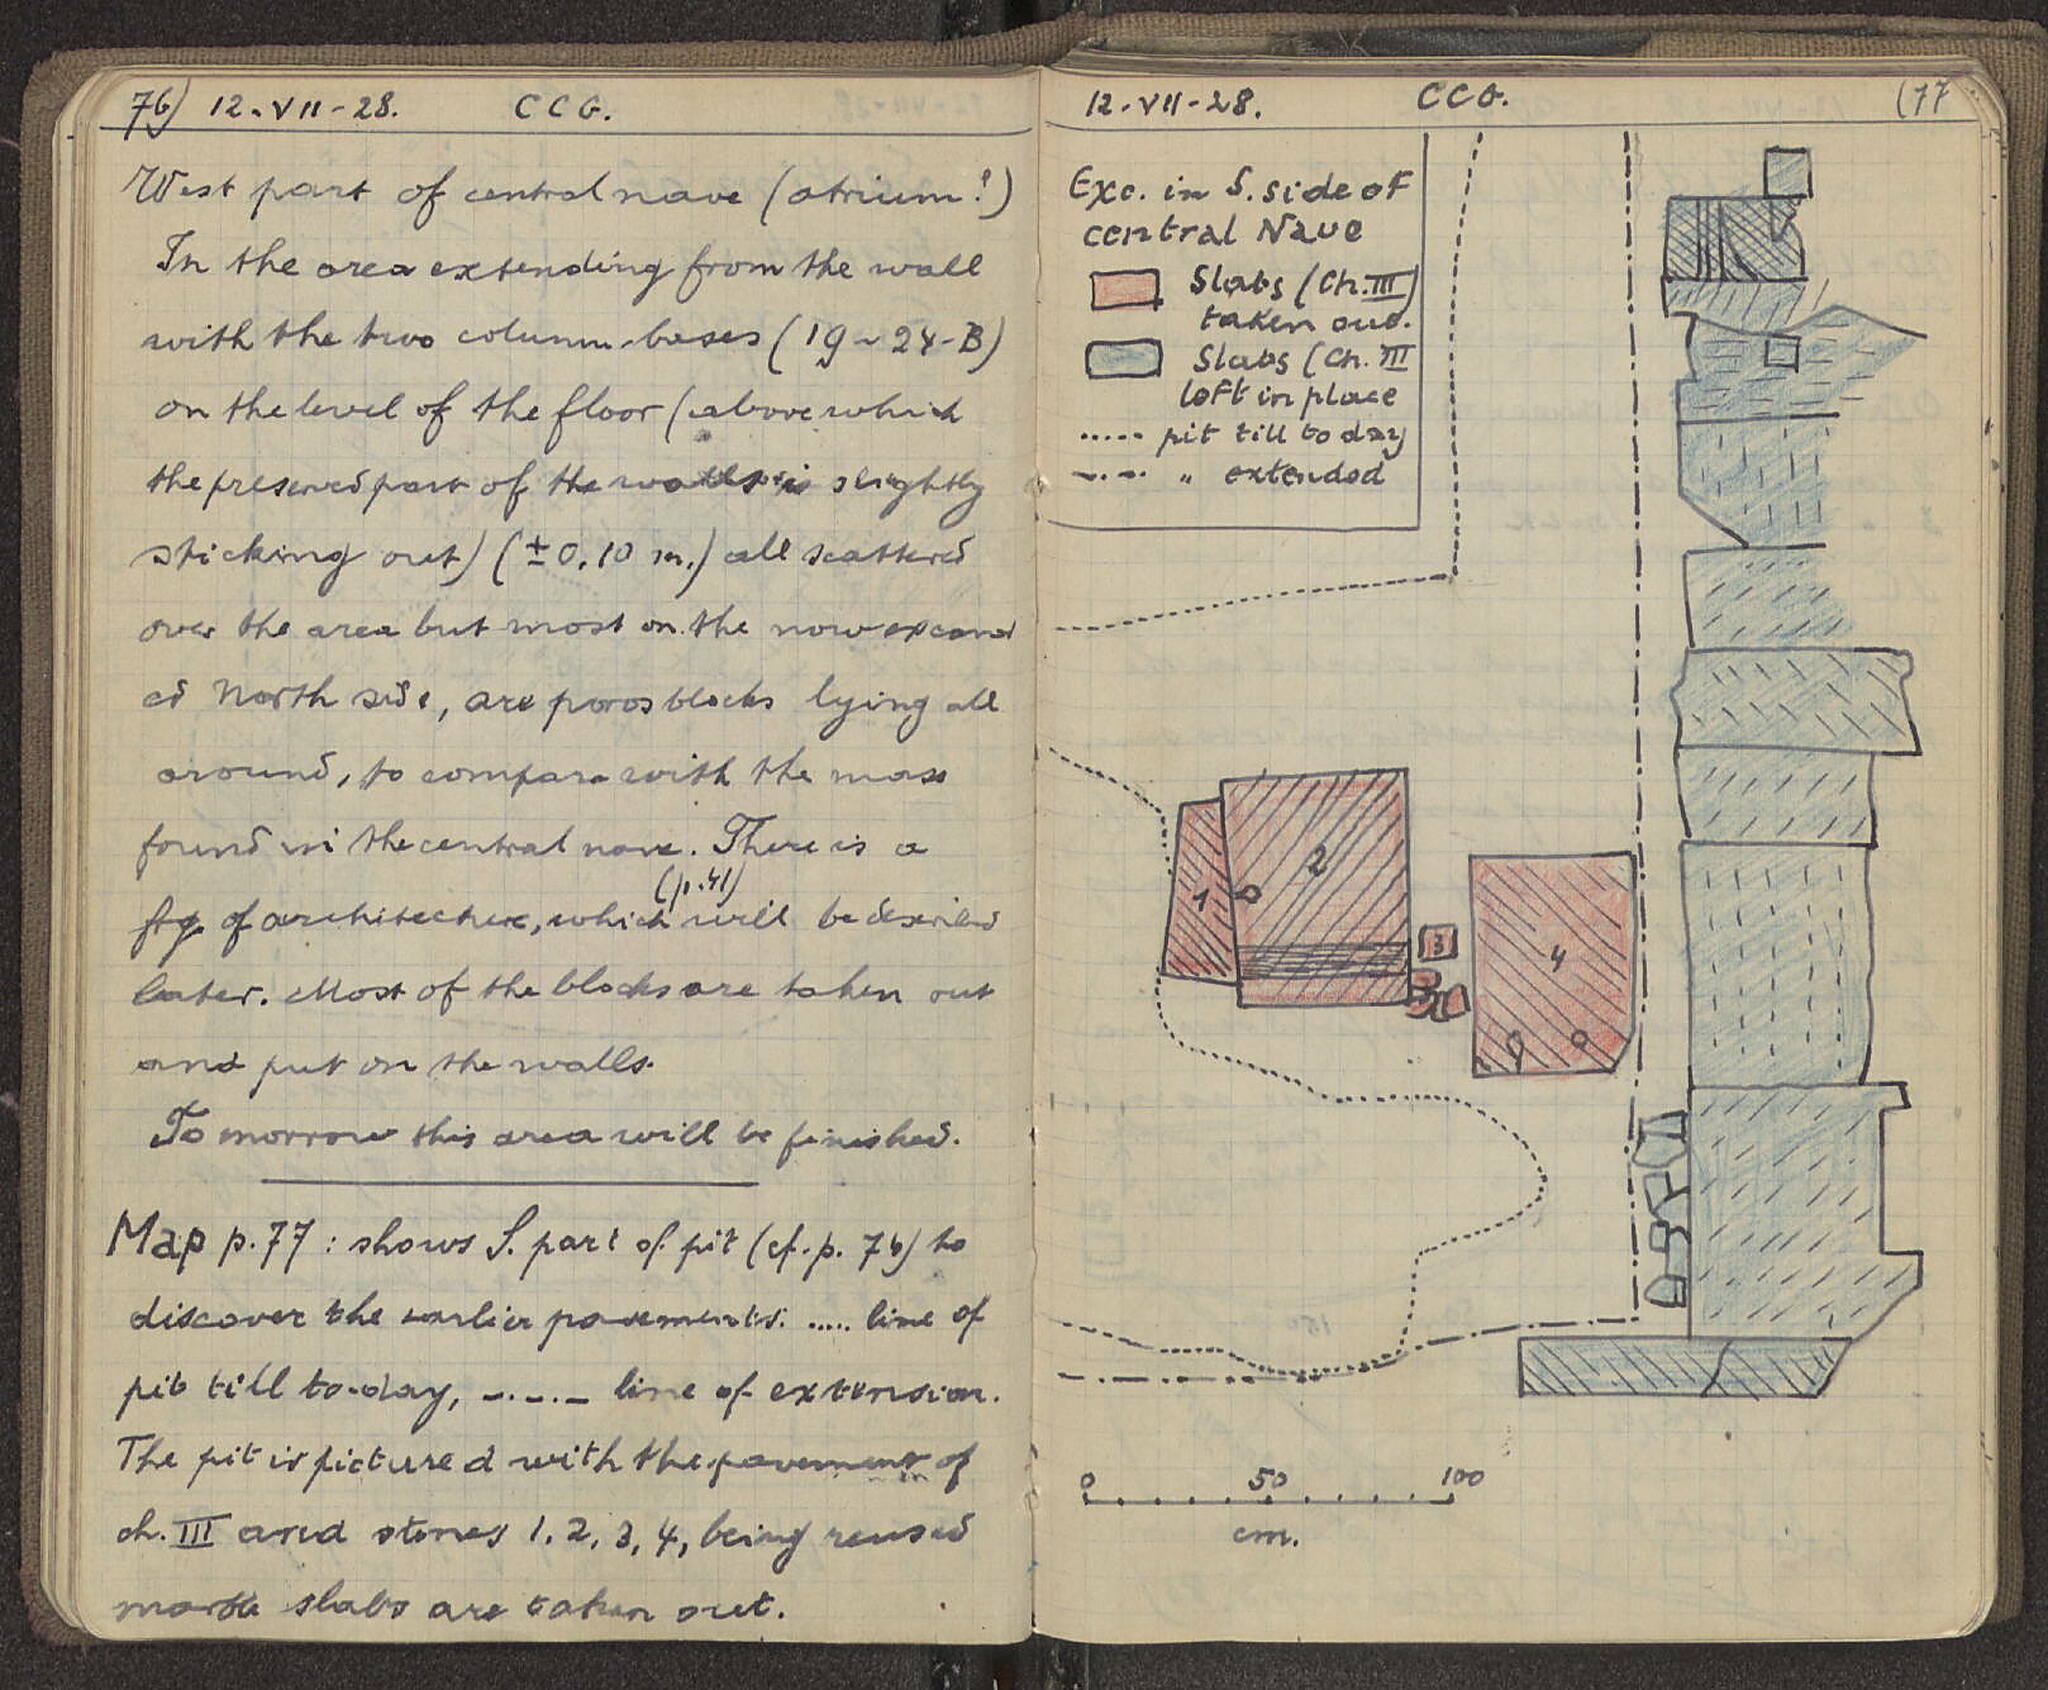 76) 12-VII-28. CCG.
West part of central nave (atrium?)
In the area extending from the wall
with the two column-bases (19-24-B)
on the level of the floor (above which
the preserved part of the walls is slightly
sticking out) (±0,10 m.) all scattered
over the area but most on the now excavat
ed North side, are poros blocks lying all
around, to compare with the mass
found in the central nave. There is a
(p.41)
ftg. of architecture, which will be described
later. Most of the blocks are taken out
and put on the walls.
To morrow this area will be finished.
Map p.77: shows S. part of pit (cf. p. 76) to
discover the earlier pavements. ..... line of
pit till to-day, -.-.- line of extension.
The pit is pictured with the pavement of
in
ch. III and stones 1, 2, 3, 4, being reused
marble slabs are taken out.
12-VII-28. CCG. (77
Exc. in S. side of
central Nave
Slabs (Ch. III)
taken out.
Slabs (Ch. III
left in place
..... pit till to day
-.-.- " extended
1
2
3
4
0 50 100
cm.